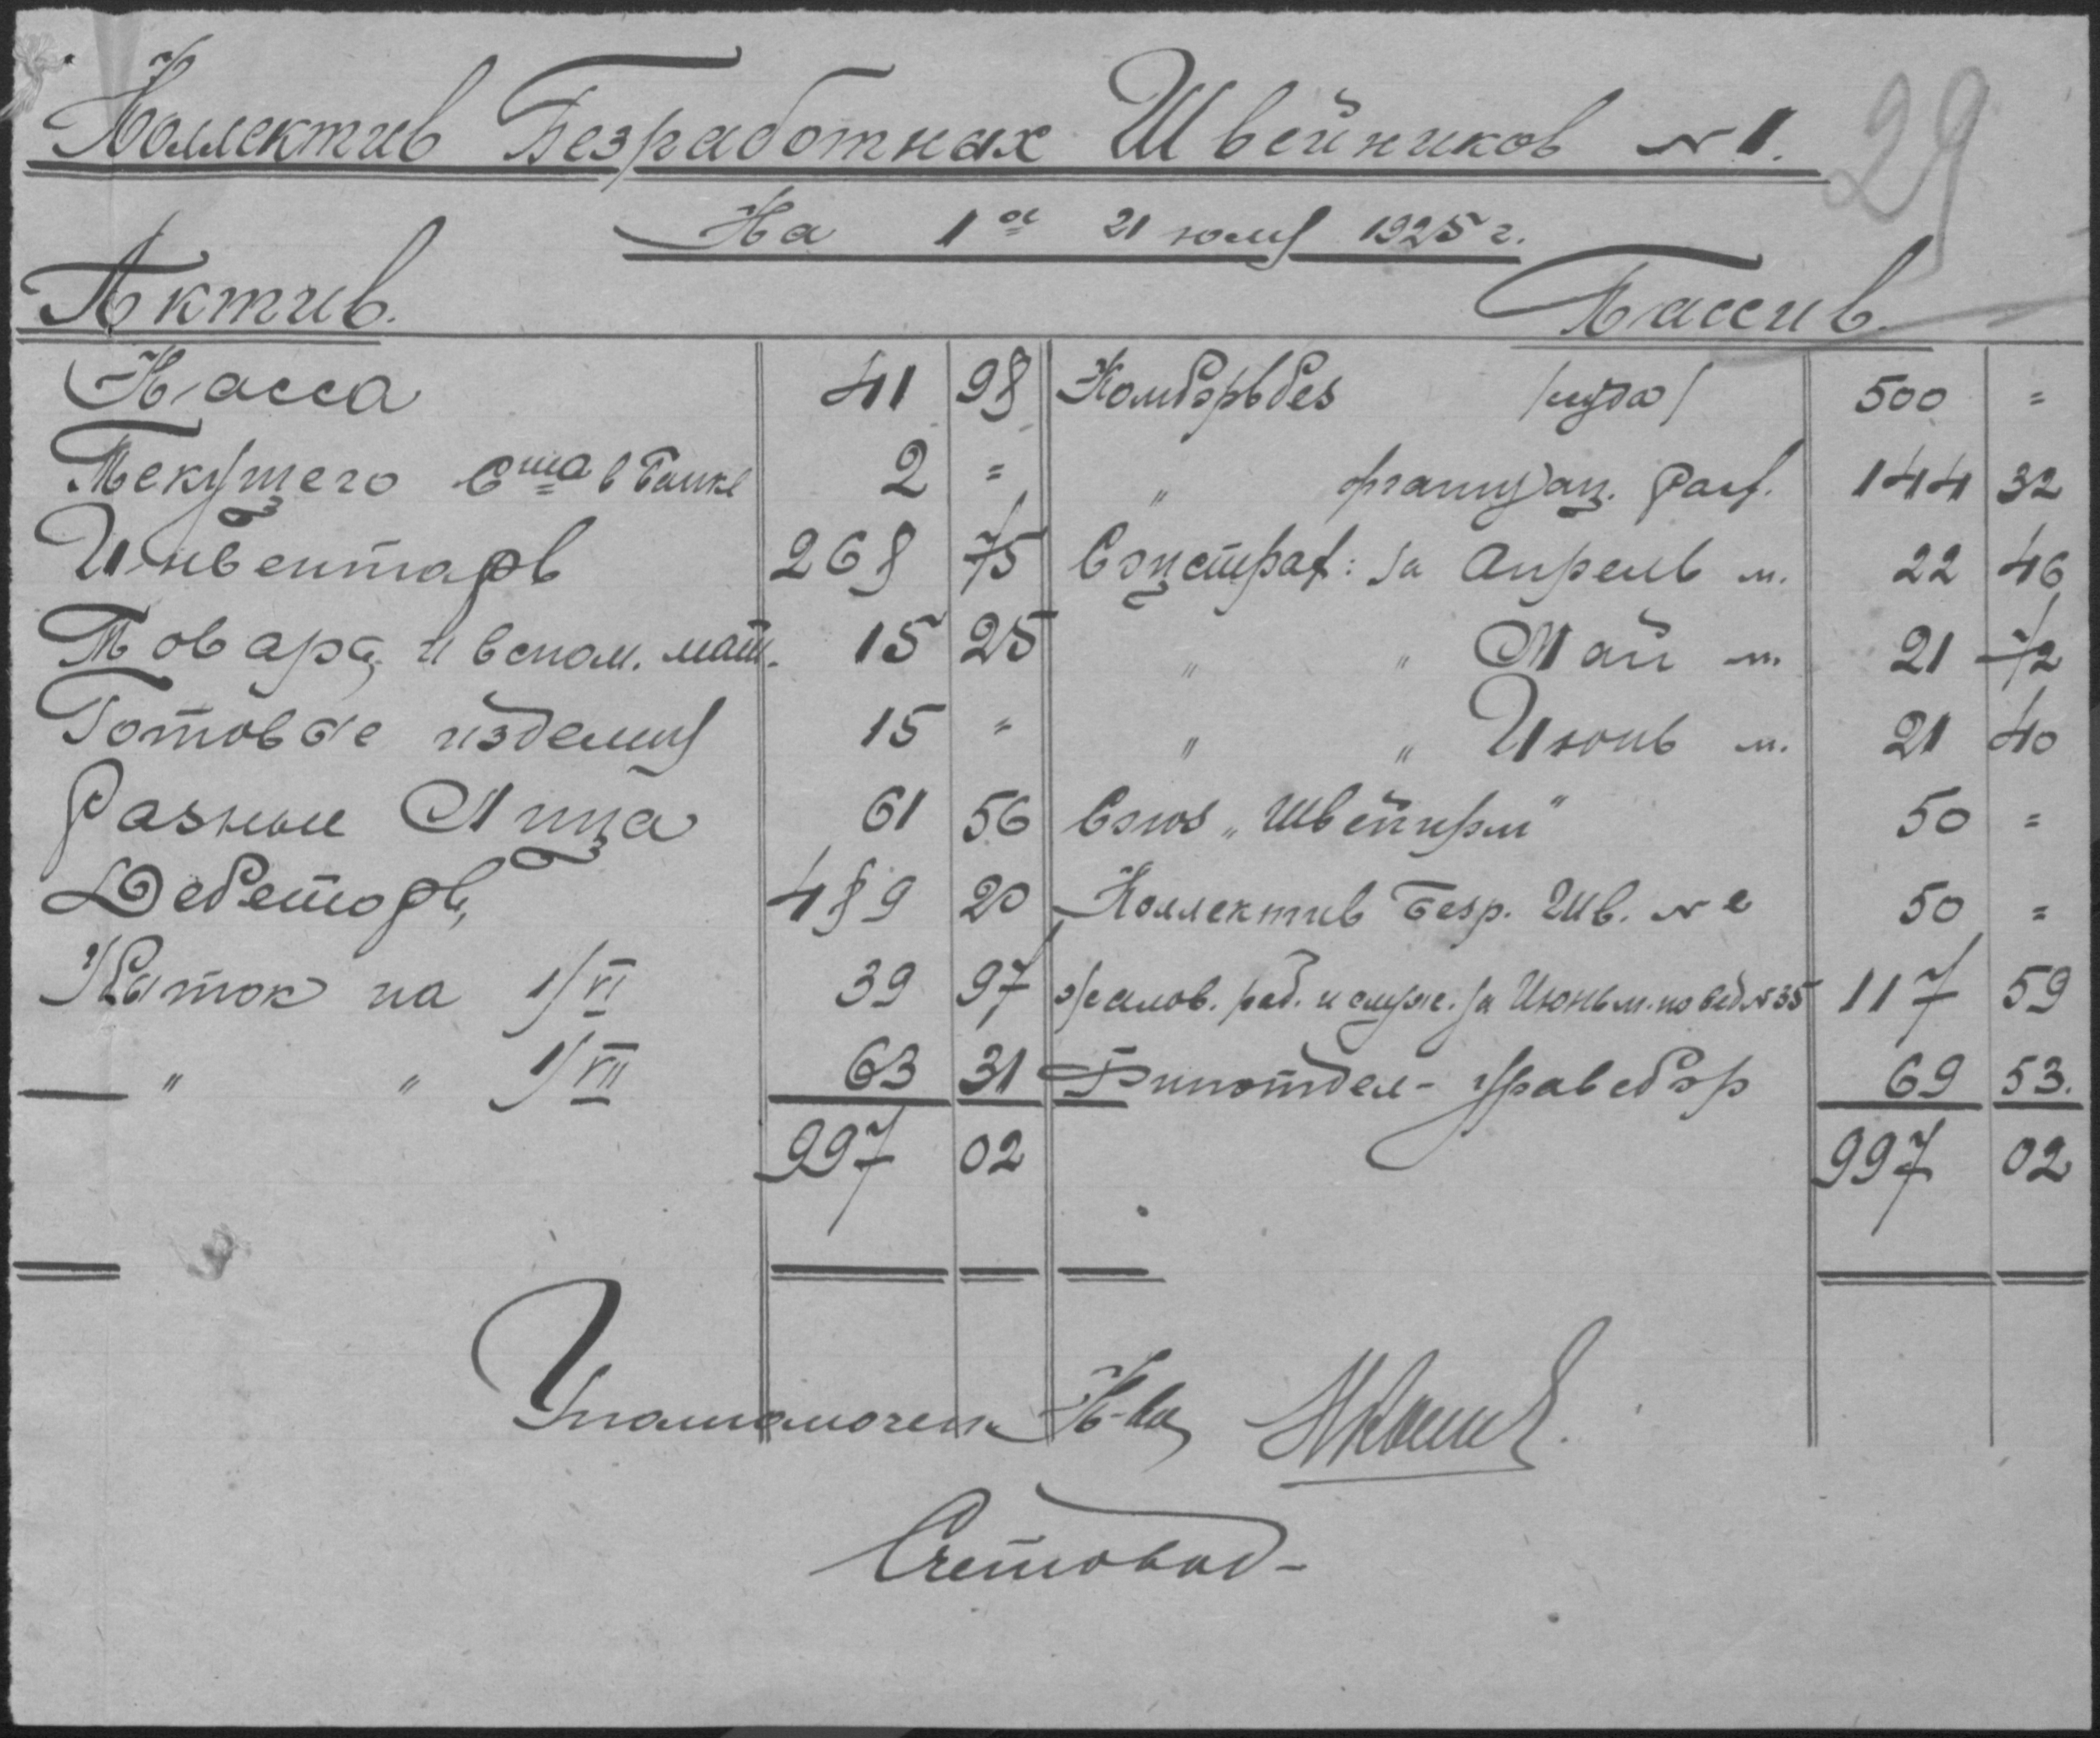 29
Коллектив Безработных Швейников № 1.
На 1ое июля 1925 г.
Актив. Пассив.
Касса 41 98 Комборьбез /ссуда/ 500 =
Текущего Счта в Банке 2 = " организац. расх. 144 32
Инвентарь 268 75 Соцстрах: за Апрель м. 22 46
Товары и вспом. мат. 15 25 " " Май м. 21 72
Готовые изделия 15 = " " Июнь м. 21 40
Разные Лица 61 56 Союз "Швейпром" 50 =
Дебеторы 489 20 Коллектив Безр. Шв. № 2 50 =
Убыток на 1/VI 39 97 Жалов. раб. и служ. за Июнь м. по вед. № 35 117 59
" " 1/VII 63 31 Финотдел - Уравсбор 69 53.
997 02 997 02
Уполномочен. К-ва
Счетовод-